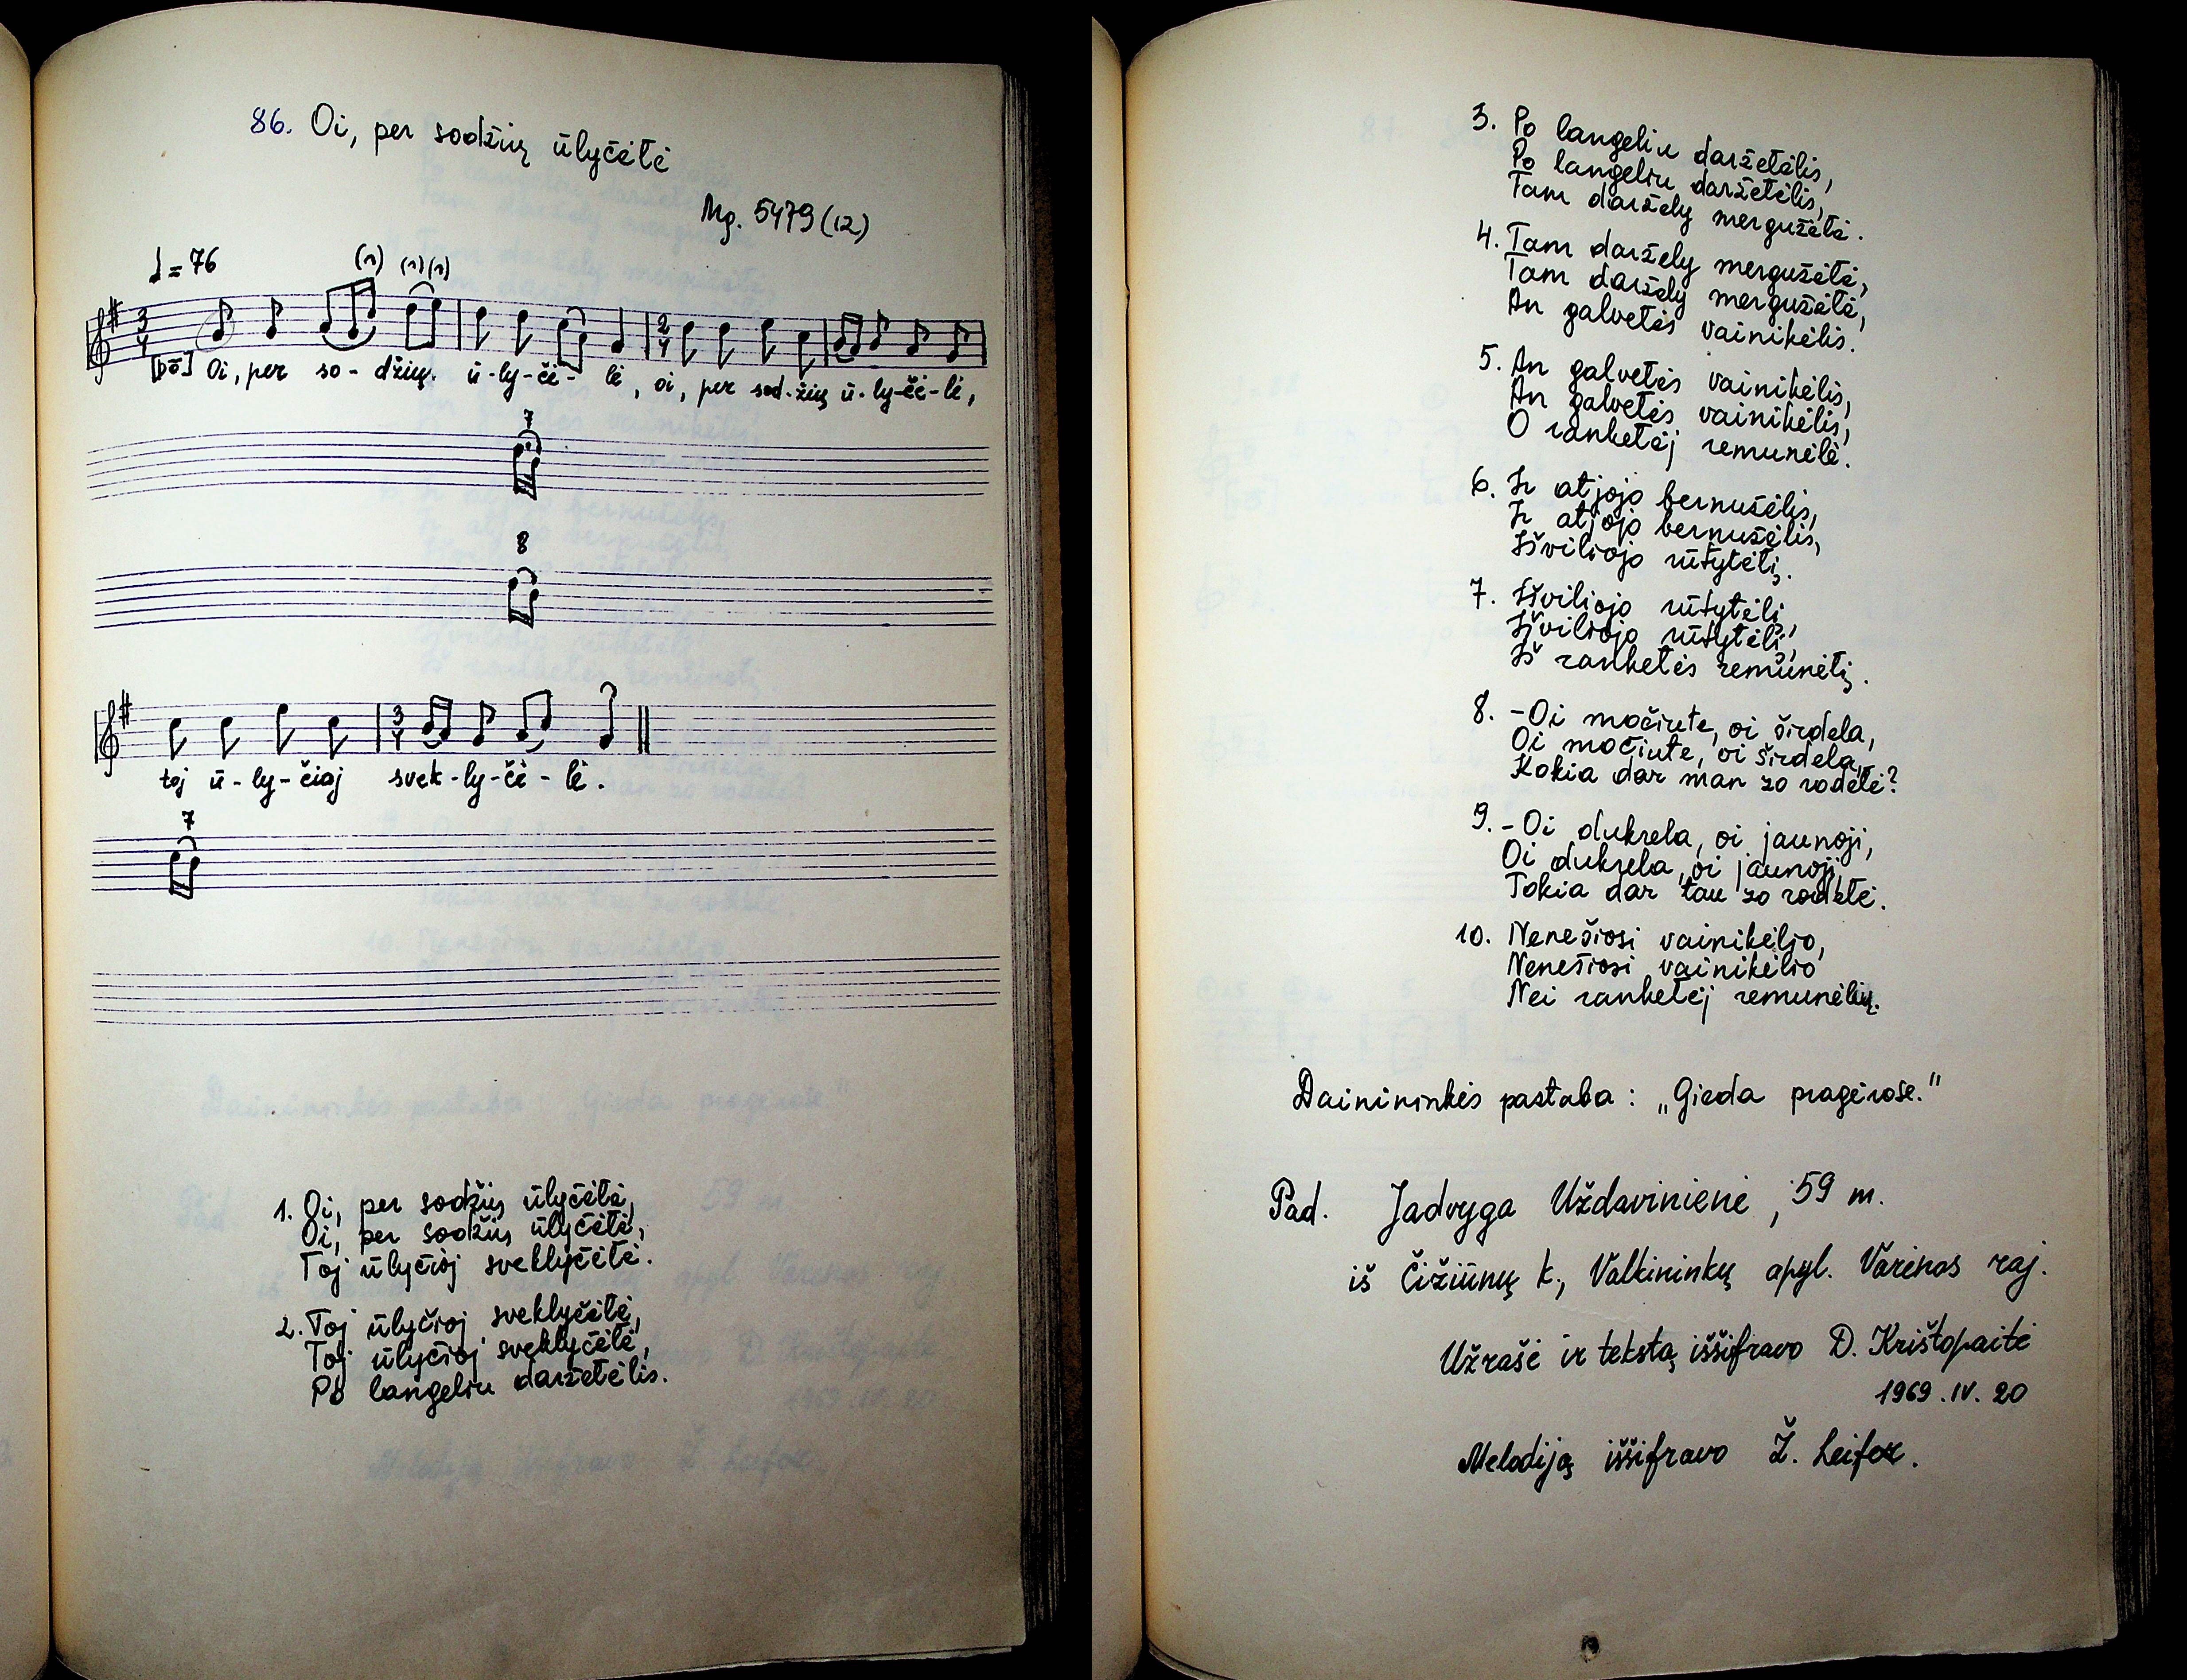 86. Oi, per sodžių ūlyčėlė
Mg. 5479 (12)
♩ = 76
Oi, per so - džių ū - ly - čė - lė, oi, per sod - žių ū - ly - čė - lė,
7
8
toj ū - ly - čiaj svek - ly - čė - lė.
7
1. Oi, per sodžių ūlyčėlė,
Oi, per sodžių ūlyčėlė,
Toj ūlyčioj sveklyčėlė.
2. Toj ūlyčioj sveklyčėlė,
Toj ūlyčioj sveklyčėlė,
Po langeliu darželėlis.
3. Po langeliu darželėlis,
Po langeliu darželėlis,
Tam daržely mergužėlė.
4. Tam daržely mergužėlė,
Tam daržely mergužėlė,
An galvelės vainikėlis.
5. An galvelės vainikėlis,
An galvelės vainikėlis,
O rankelėj remunėlė.
6. Ir atjojo bernužėlis,
Ir atjojo bernužėlis,
Išviliojo rūtytėlį.
7. Išviliojo rūtytėlį,
Išviliojo rūtytėlį,
Iš rankelės remunėlį.
8. - Oi močiute, oi širdela,
Oi močiute, oi širdela,
Kokia dar man zo rodelė?
9. - Oi dukrela, oi jaunoji,
Oi dukrela, oi jaunoji,
Tokia dar tau zo rodelė.
10. Nenešiosi vainikėlio,
Nenešiosi vainikėlio
Nei rankelėj remunėlių.
Dainininkės pastaba: „Gieda pragėrose."
Pad. Jadvyga Uždavinienė, 59 m.
iš Čižiūnų k., Valkininkų apyl. Varėnos raj.
Užrašė ir tekstą iššifravo D. Krištopaitė
1969.IV.20
Melodiją iššifravo Ž. Leifer.